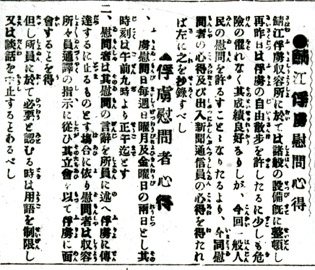 ●鯖江俘虜慰問心得
鯖江俘虜収容所に於ては諸般の設備既に整頓し
再昨日は俘虜の自由散歩を許したるに少しも危
険の懼れなく其成績良好なりしが、今回一般人
民の慰問を許すことゝなりたるより、今回慰
問者の心得及び出入新聞通信員の心得を得たれ
ば左に之を抄録すべし
▲俘虜慰問者心得
一、俘虜慰問日毎週日曜月及金曜日の両日とし其
時刻は午前九時より正午迄とす
二、慰問者は其慰問の言辞を所員に述へ俘虜に傳
達するに止まるものとす場合に依り慰問者は収容
所々員通譯の指示に從ひ其立會を以て俘虜に面
會するとを得
但し所員に於て必要と認むる時は用語を制限し
又は談話を中止するとあるべし